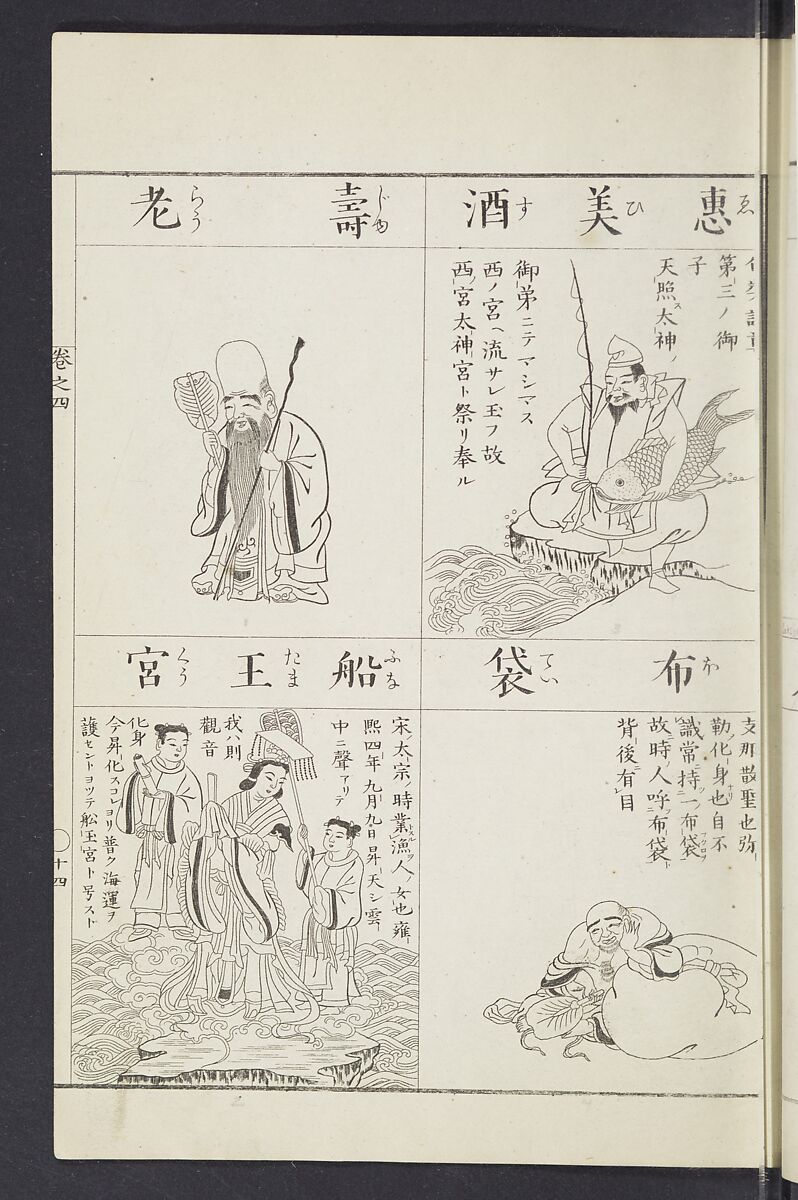 惠美酒
ゑひす
第三ノ御
子
天照太神ノ
御弟ニテマシマス
西ノ宮ヘ流サレ玉フ故
西ノ宮太神宮ト祭リ奉ル
壽老
じゆらう
布袋
ほてい
支那散聖也弥
勒化身也自不
識常持一布袋
故時人呼布袋
背後有目
船玉宮
ふなたまくう
宋ノ太宗ノ時業漁人ノ女也雍
熙四年九月九日昇天シ雲
中ニ聲アリテ
我ハ則
觀音
化身
今昇化スコレヨリ普ク海運ヲ
護セントヨツテ舩玉宮ト号スト
卷之四
十四